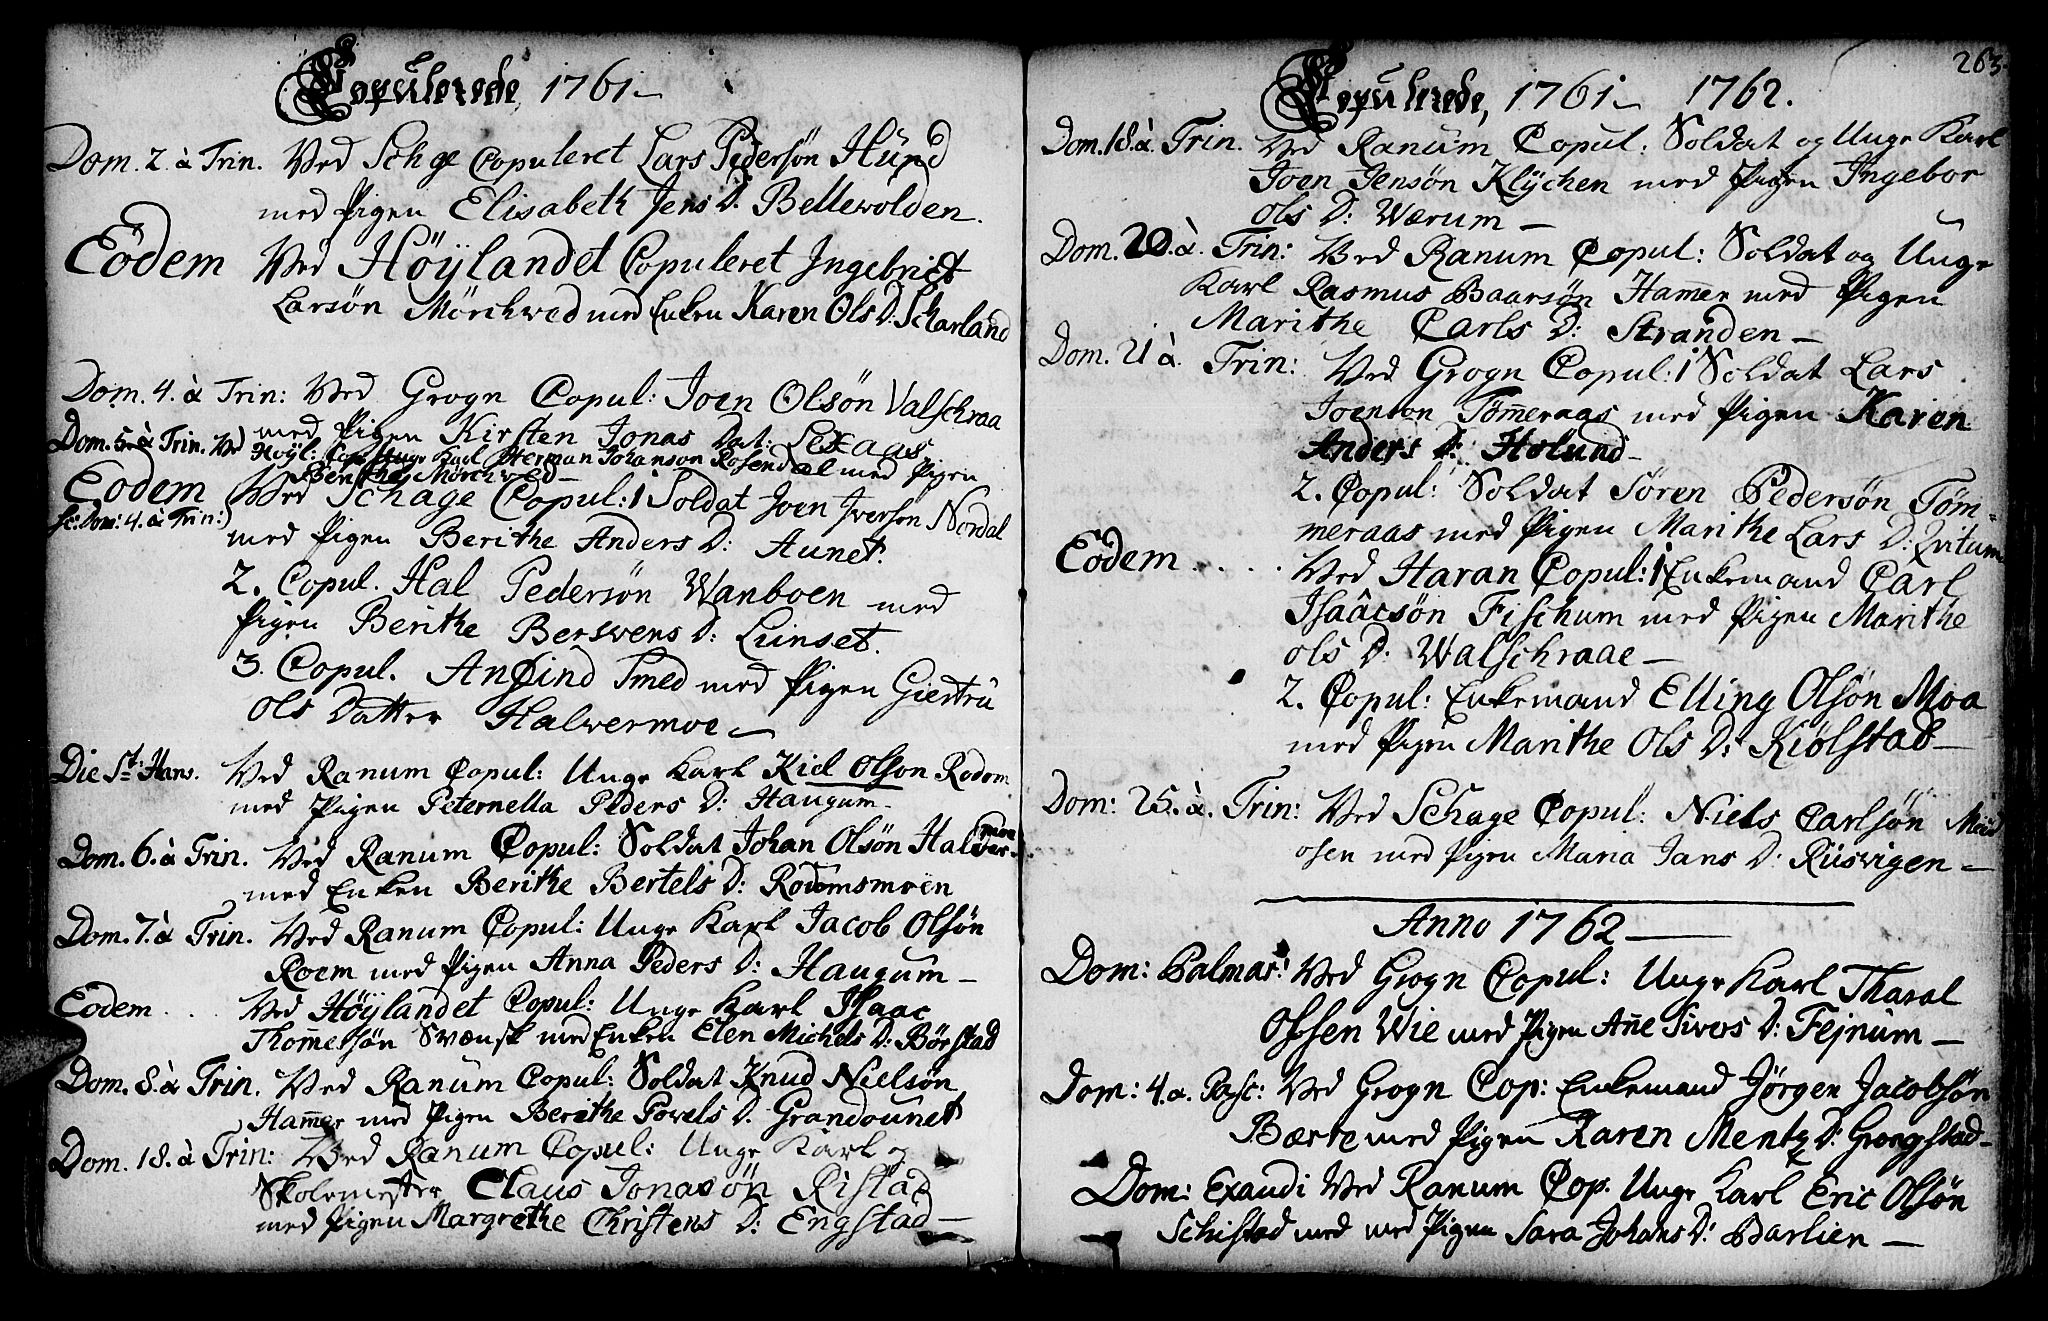 Copulerede, 1761
Dom. 2. à Trin. Ved Schge Copuleret Lars Pedersön Hund
med Pigen Elisabeth Jens D. Bellewolden.
Eodem Ved Höÿlandet Copuleret Ingebrict
Larsön Mörchwed med Enken Karen Ols D. Scharland
Dom. 4. à Trin: Ved Grogn Copul: Joen Olsön Valschraa
med Pigen Kirsten Jonas Dat: Lexaas
Dom. 5. à Trin. Ved Höyl: Cop. Unge Karl Herman Johanson Rosendal med Pigen
Berithe Mörchwed
Eodem Ved Schage Copul: 1 Soldat Joen Iverson Nordal
sc: Dom: 4. à Trin: med Pigen Berithe Anders D: Aunet.
2. Copul. Hal Pedersön Wanboen med
Pigen Berithe Berswens D: Linset.
3. Copul. Anfind Smed med Pigen Giertru
Ols Datter Halwermoe
Die St: Hans. Ved Ranum Copul: Unge Karl Kiel Olson Rodom
med Pigen Peternella Peders D: Haugum
Dom. 6. à Trin. Ved Ranum Copul: Soldat Johan Olsön Halver
moe
med Enken Berithe Bertels D: Rodomsmoen
Dom. 7. à Trin. Ved Ranum Copul: Unge Karl Jacob Olsön
Roem med Pigen Anna Peders D: Haugum
Eodem . . . Ved Höÿlandet Copul: Unge Karl Isaac
Thom̄esön Svænsk med Enken Elen Michels D: Börstad
Dom. 8. à Trin. Ved Ranum Copul: Soldat Knud Nielsön
Ham̄er med Pigen Berithe Powels D. Grandounet
Dom. 18. à Trin: Ved Ranum Copul: Unge Karl og
Skolemester Claus Jonasön Ristad
med Pigen Margrethe Christens D: Engstad
263.
Copulerede, 1761 1762.
Dom. 18. à Trin. Ved Ranum Copul: Soldat og Unge Karl
Joen Jensön Klÿchen med Pigen Ingebor
Ols D: Wærum
Dom. 20. à. Trin: Ved Ranum Copul: Soldat og Unge
Karl Rasmus Baarsön Hamer med Pigen
Marithe Carls D: Stranden
Dom. 21 à. Trin: Ved Grogn Copul: 1 Soldat Lars
Joenson Töm̄eraas med Pigen Karen
Anders D: Holund
2. Copul: Soldat Sören Pedersön Töm=
meraas med Pigen Marithe Lars D:
Eodem . . . . Ved Haran Copul: 1 Enkemand Carl
Isaacsön Fischum med Pigen Marithe
Ols D: Walschraae
2. Copul: Enkemand Elling Olsön Moa
med Pigen Marithe Ols D: Kiölstad
Dom: 25. à. Trin: Ved Schage Copul: Niels Carlsön
osen med Pigen Maria Jans D: Riiswigen
Anno 1762
Dom: Palmar: Ved Grogn Copul: Unge Karl Tharal
Olsen Wie med Pigen An̄e Siwers D: Fejnum
Dom: 4. a. Pasc: Ved Grogn Cop: Enkemand Jörgen Jacobsön
Bærte med Pigen Karen Mentz D: Grongstad
Dom: Exaudi Ved Ranum Cop. Unge Karl Eric Olsön
Schistad med med Pigen Sara Johans D: Barlien